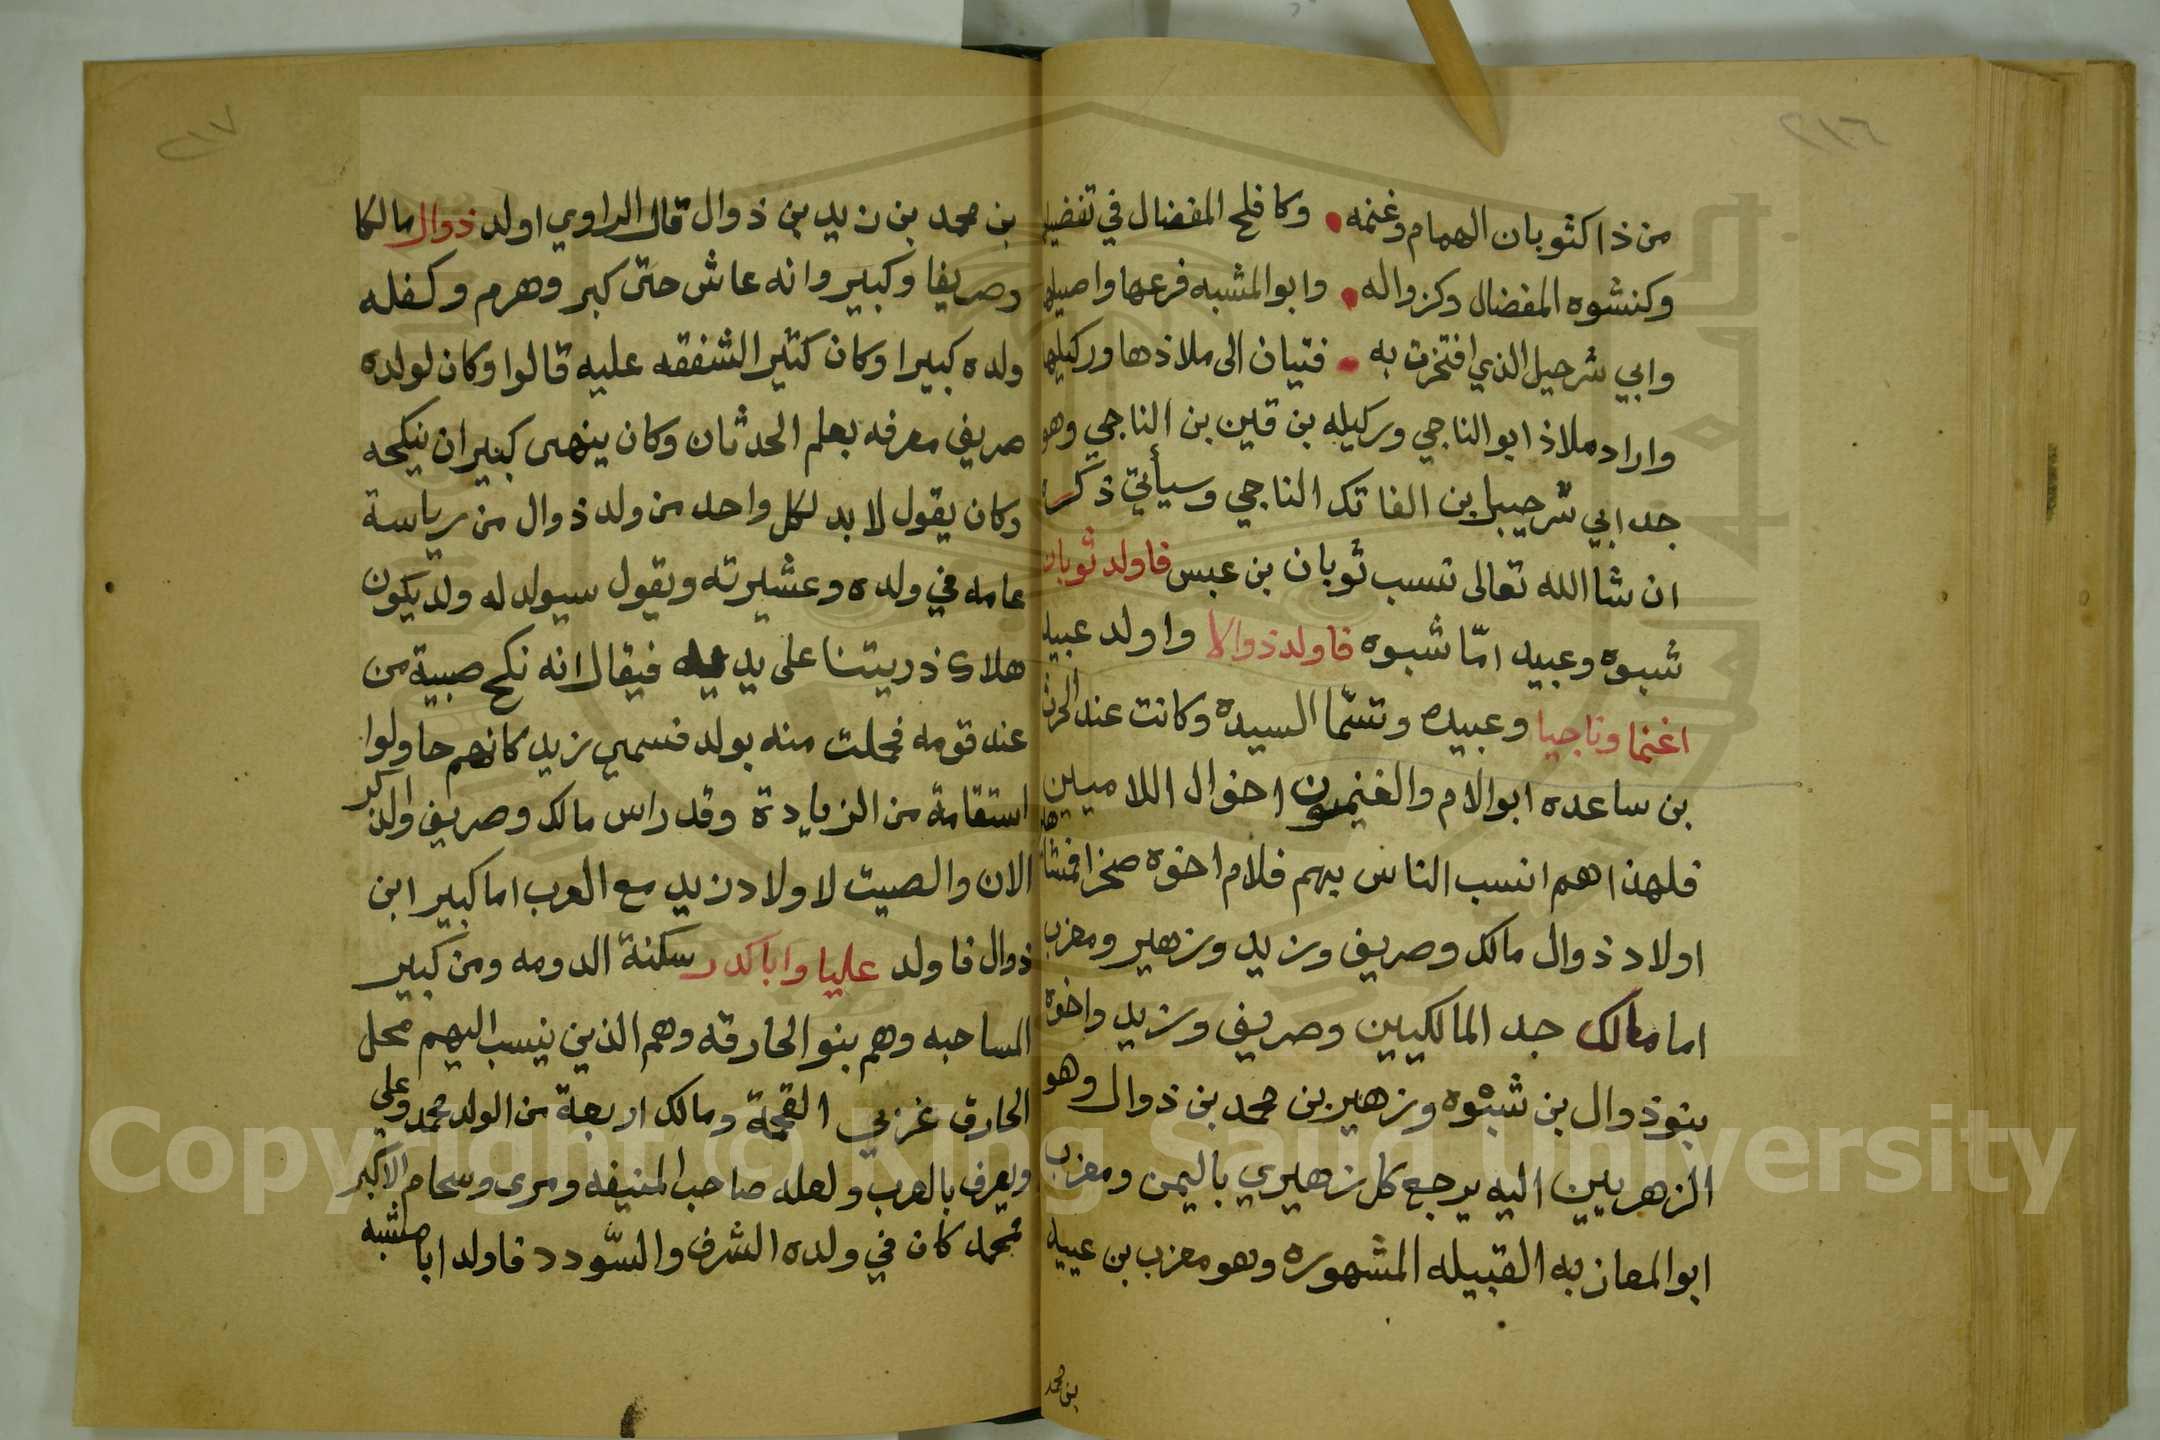 ٢١٦
من ذا كثوبان الهمام وغنمه وكا فلح المفضال في تفضيلها
وكنشوه المفضال وكزواله وابو المشبه فرعها واصيلها
وابي شرحيل الذي افتخرت به فتيان الى ملاذها وركيلها
واراد ملاذ ابو الناجي وركيله بن قين بن الناجي وهو
جد ابي شرحبيل بن الفاتك الناجي وسيأتي ذكره
ان شا الله تعالى نسب ثوبان بن عبس فاولد ثوبان
شبوه وعبيد امّا شبوه فاولد ذوالا واولد عبيد
اغنما وناجيا وعبيده وتسمّا السيده وكانت عند الحرث
بن ساعده ابو الام والغنميون اخوال اللاميين
فلهذا هم انسب الناس بهم فلام اخوه صخر
اولاد ذوال مالك وصريف وزيد وزهير ومعزب
اما مالك جد المالكيين وصريف وزيد واخوه
بنو ذوال بن شبوه وزهير بن محمد بن ذوال وهو
الزهريين اليه يرجع كل زهيري باليمن ومعزب
ابو المعازبه القبيله المشهوره وهو معزب بن عبيد
بن محمد
٢١٧
بن محمد بن زيد بن ذوال قال الراوي اولد ذوال مالكا
وصريفا وكبير وانه عاش حتى كبر وهرم وكفله
ولده كبيرا وكان كثير الشفقه عليه قالوا وكان لولده
صريف معرفه بعلم الحدثان وكان ينهى كبير ان ينكحه
وكان يقول لا بد لكل واحد من ولد ذوال من رياسة
عامه في ولده وعشيرته ويقول سيولد له ولد يكون
هلاك ذريتنا على يديه فيقال انه نكح صبية من
عند قومه فحملت منه بولد فسمي زيد كانهم حاولوا
استقامة من الزيادة وقد راس مالك وصريف والذكر
الان والصيت لاولاد زيد مع العرب اما كبير ابن
ذوال فاولد عليا وابا كدر سكنة الدومه ومن كبير
المساحبه وهم بنو الحارقه وهم الذين ينسب اليهم محل
الحارق غربي القحمة ومالك اربعة من الولد محمد وعلي
ويعرف بالعرب ولعله صاحب المنيفه ومرى وسحام الاكبر
محمد كان في ولده الشرف والسّودد فاولد ابا مشبه
Copyright © King Saud University